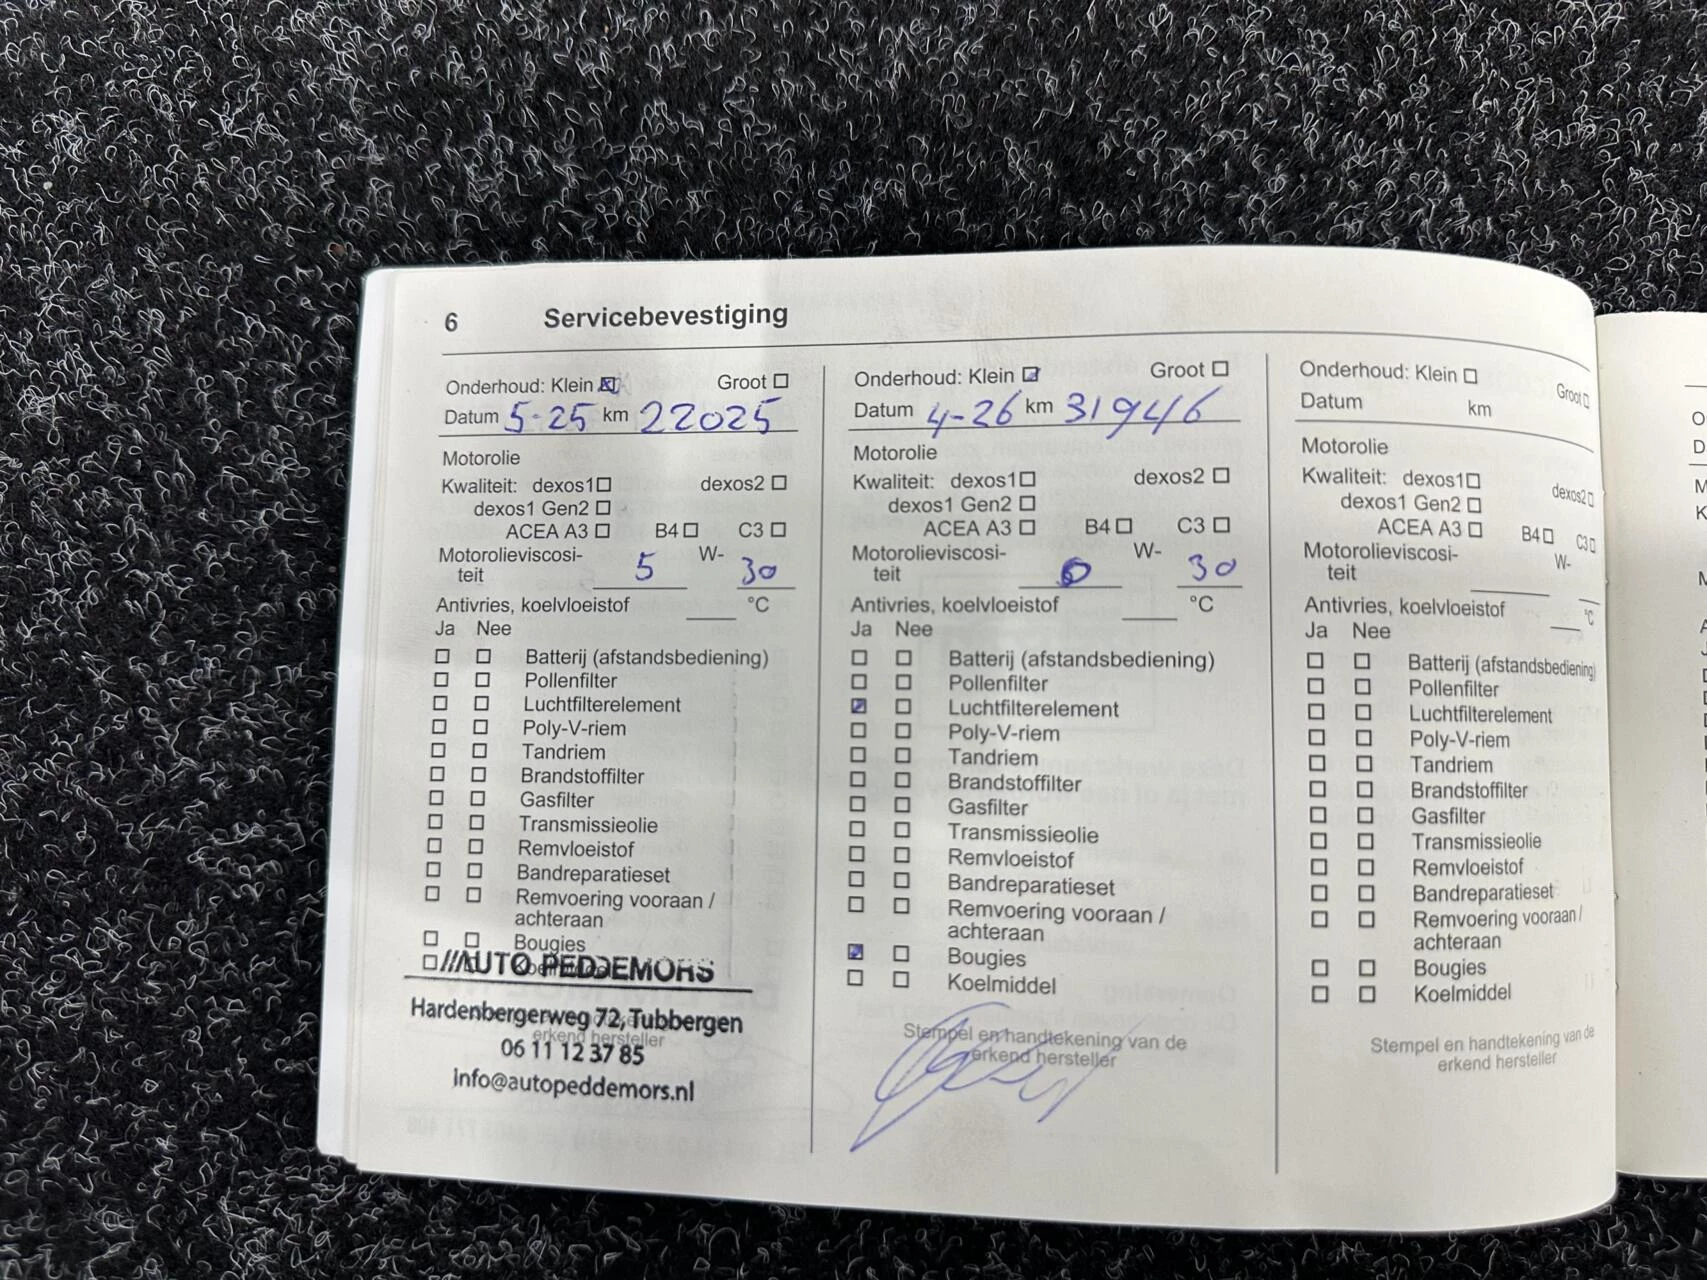 6 Servicebevestiging
Onderhoud: Klein Groot
Datum 5-25 km 22025
Motorolie
Kwaliteit: dexos1 dexos2
dexos1 Gen2
ACEA A3 B4 C3
Motorolieviscosi-
teit 5 W- 30
Antivries, koelvloeistof °C
Ja Nee
Batterij (afstandsbediening)
Pollenfilter
Luchtfilterelement
Poly-V-riem
Tandriem
Brandstoffilter
Gasfilter
Transmissieolie
Remvloeistof
Bandreparatieset
Remvoering vooraan /
achteraan
Bougies
///AUTO PEDDEMORS
Hardenbergerweg 72, Tubbergen
erkend hersteller
06 11 12 37 85
info@autopeddemors.nl
Onderhoud: Klein Groot
Datum 4-26 km 31946
Motorolie
Kwaliteit: dexos1 dexos2
dexos1 Gen2
ACEA A3 B4 C3
Motorolieviscosi-
teit 0 W- 30
Antivries, koelvloeistof °C
Ja Nee
Batterij (afstandsbediening)
Pollenfilter
Luchtfilterelement
Poly-V-riem
Tandriem
Brandstoffilter
Gasfilter
Transmissieolie
Remvloeistof
Bandreparatieset
Remvoering vooraan /
achteraan
Bougies
Koelmiddel
Stempel en handtekening van de
erkend hersteller
Onderhoud: Klein Groot
Datum km
Motorolie
Kwaliteit: dexos1 dexos2
dexos1 Gen2
ACEA A3 B4 C3
Motorolieviscosi-
teit W-
Antivries, koelvloeistof °C
Ja Nee
Batterij (afstandsbediening)
Pollenfilter
Luchtfilterelement
Poly-V-riem
Tandriem
Brandstoffilter
Gasfilter
Transmissieolie
Remvloeistof
Bandreparatieset
Remvoering vooraan /
achteraan
Bougies
Koelmiddel
Stempel en handtekening van de
erkend hersteller